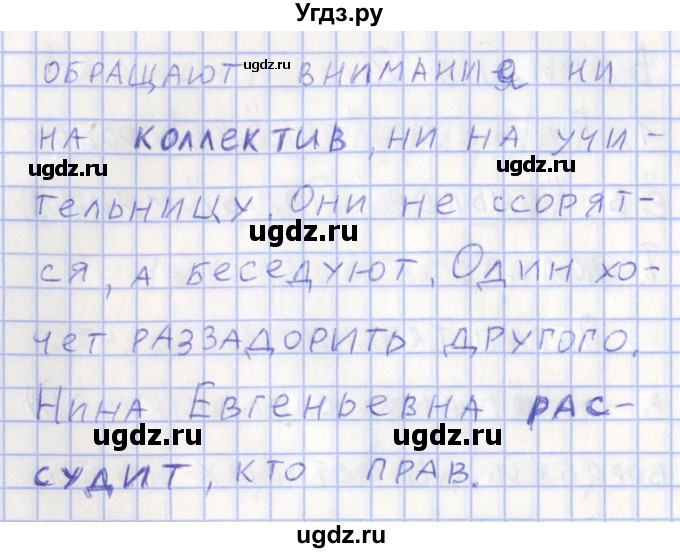 Угдз.ру
обращают внимания ни
ugdz.ru
на коллектив, ни на учи-
ugdz.ru ugdz.ru
тельницу. Они не ссорят-
ugdz.ru
ся, а беседуют. Один хо-
чет раззадорить другого.
Нина Евгеньевна рас-
ugdz.ru ugdz.ru
судит, кто прав.
ugdz.ru